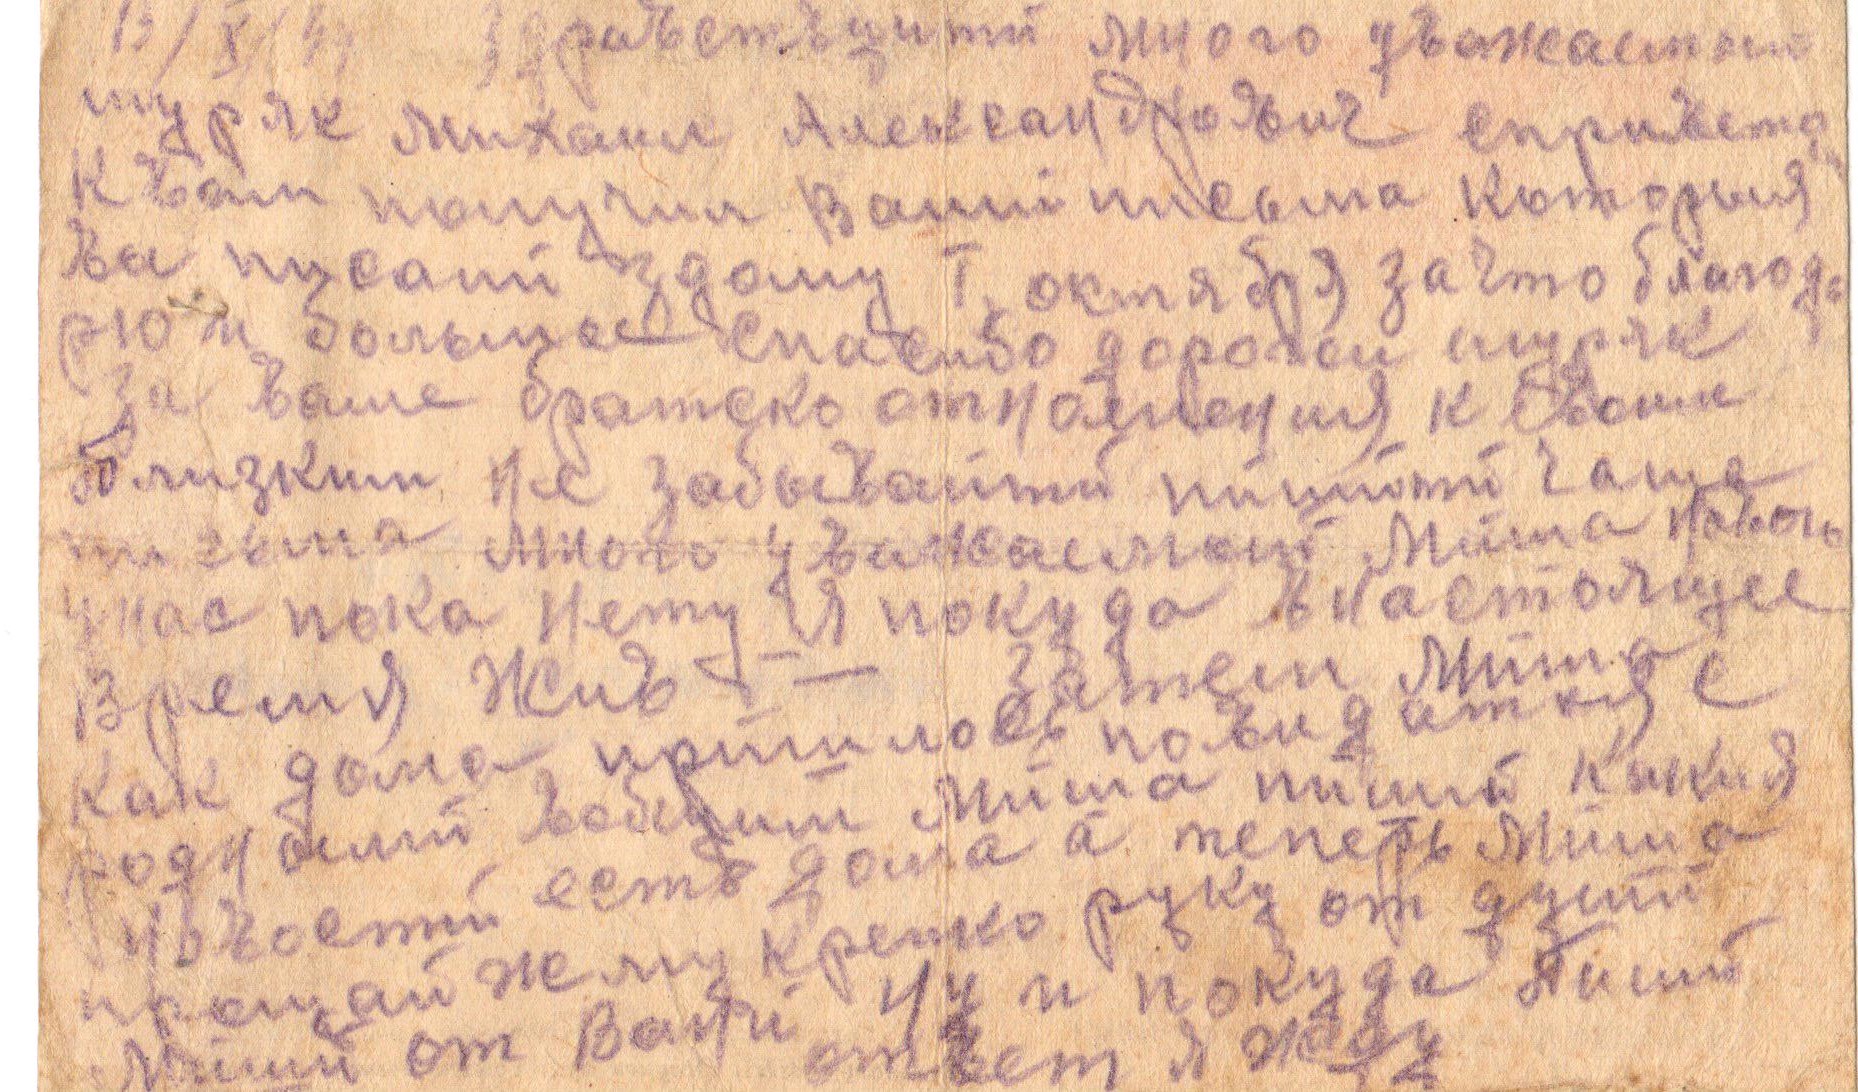 13/XI/44 Здравствуйти много уважаемый
шуряк Михаил Александрович спривето
к вам получил Вашиі писма которыя
ва писали здому 1 октября за что благода
рю и большое спасибо дорогой шуряк
за ваше братско отношения к своим
близким не забывайти пишити чаша
письма много уважаемый Миша новои
у нас пока нету я покуда внастоящее
Время жив затем Миша
как дома пришлось повидатся с
родными вобщим Миша пиши какия
новости есть дома а теперь Миша
прощай жму крепко руку от души
Миши от Вани ну и покуда пиши
ответ я жду